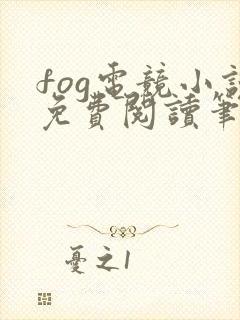 fog電競小說
免費閱讀筆
憂之1